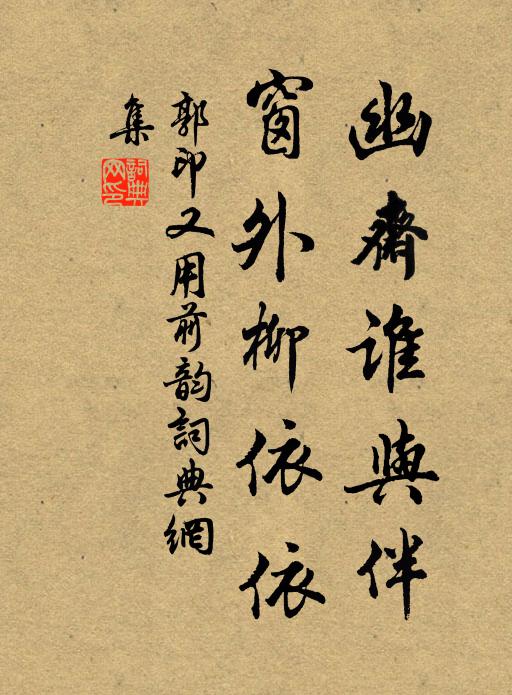 幽齋誰與伴
窗外柳依依
郭印又用前韵詞典網
集
詞典网印